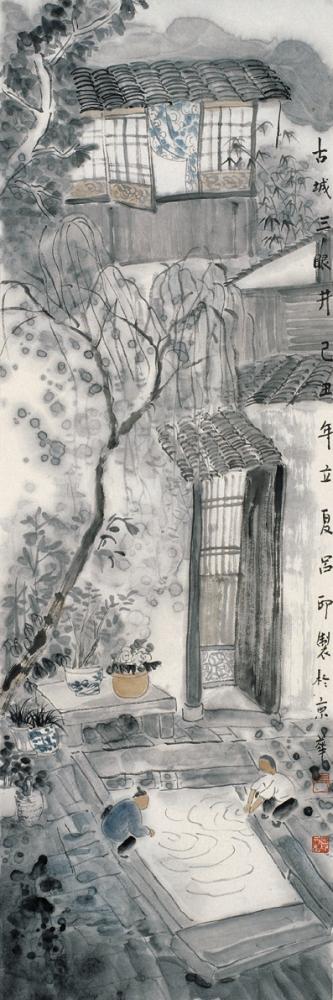 古城三眼井己丑年立夏吕印製於京華